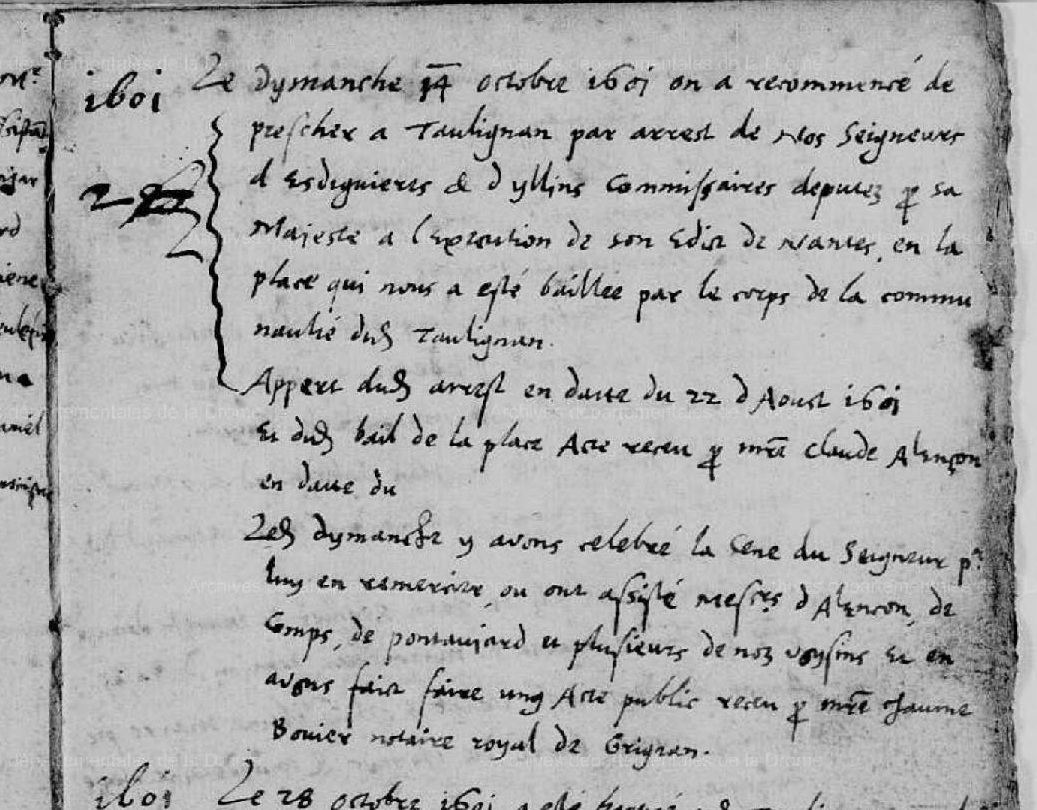 1601 Le dymanche 14 octobre 1601 on a recommencé de
prescher a Taulignan par arrest de Nos Seigneurs
d Esdiguieres & d yllins Commissaires deputez p sa
Majesté a l Execution de son Edict de Nantes, en la
place qui nous a esté baillée par le corps de la commu
naulté dud Taulignan.
Appert dud arrest en datte du 22 d Aoust 1601
Et dud bail de la place Acte receu p mre Claude Alençon
en datte du
Led dymanche y avons celebré la Cene du Seigneur pr
luy en remercier, ou ont assisté messrs d Alencon, de
Comps, de pontaujard et plusieurs de noz voysins Et en
avons faict faire ung Acte public receu p mre Jaume
Bouier notaire royal de Grignan.
1601 Le 28 octobre 1601 a esté